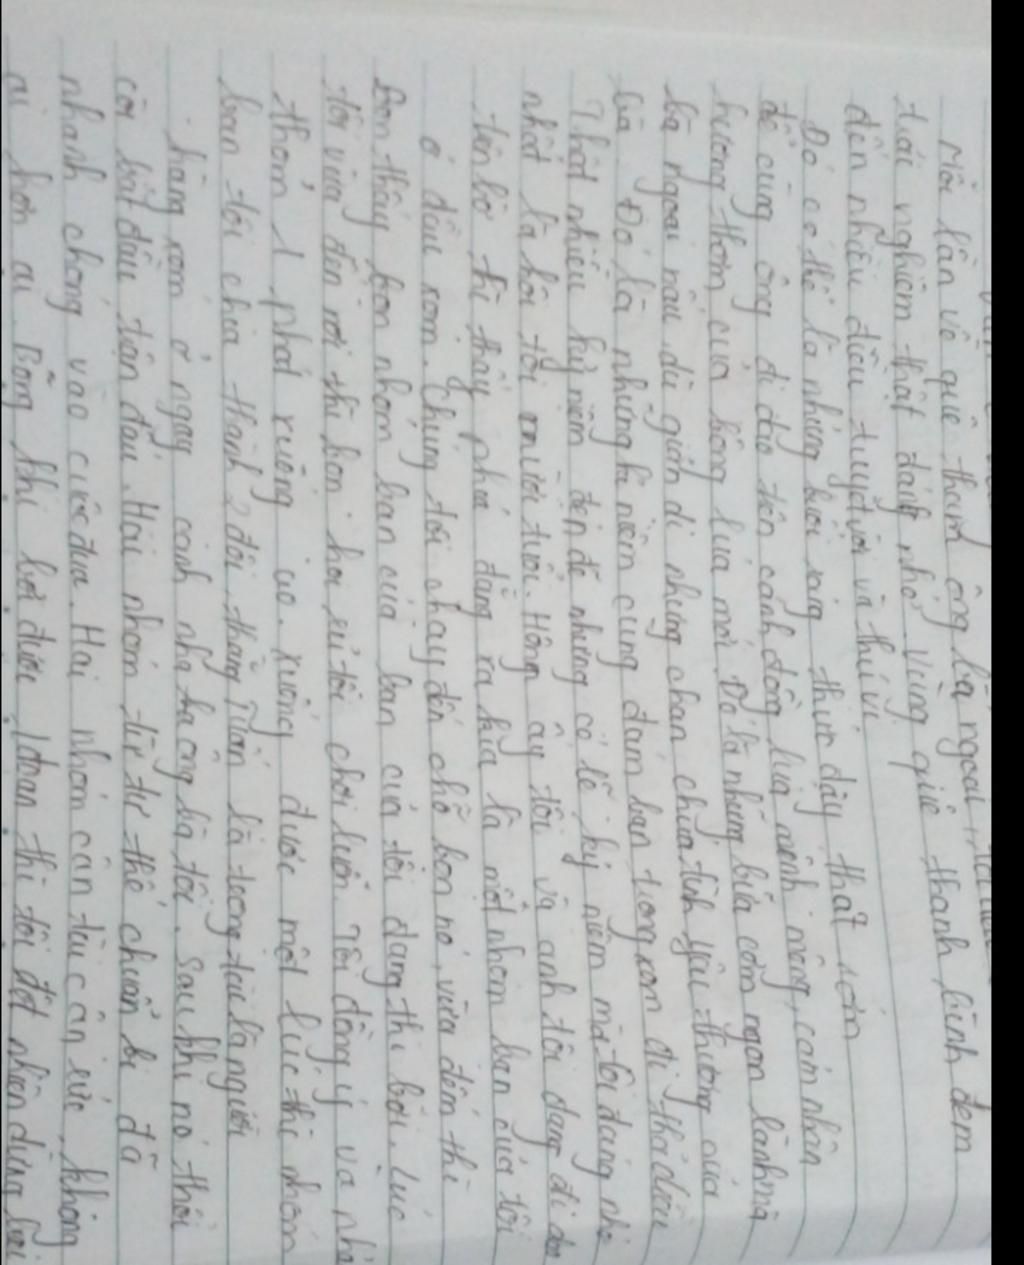 Mỗi lần về quê thăm ông bà ngoại,
trải nghiệm thật đáng nhớ. Vùng quê thanh bình đem
đến nhiều điều tuyệt vời và thú vị
Đó có thể là những buổi sáng thức dậy thật sớm
để cùng ông đi dạo trên cánh đồng lúa mênh mông, cảm nhận
hương thơm của bông lúa mới. Đó là những bữa cơm ngon lành mà
bà ngoại nấu, dù giản dị nhưng chan chứa tình yêu thương của
bà. Đó là những kỉ niệm cùng đám bạn trong xóm đi thả diều
Thật nhiều kỷ niệm đẹp đẽ nhưng có lẽ kỷ niệm mà tôi đáng nhớ
nhất là hồi tôi mười tuổi. Hôm ấy tôi và anh tôi đang đi dạo
trên bờ thì thấy phía đằng xa kia là một nhóm bạn của tôi
ở đầu xóm. Chúng tôi chạy đến chỗ bọn nó, vừa đến thì
bọn thấy bọn nhóm bạn của bạn của tôi đang thi bơi. Lúc
tôi vừa đến nơi thì bọn họ rủ tôi chơi luôn. Tôi đồng ý và nhảy
thỏm 1 phát xuống ao. Xuống được một lúc thì nhóm
bạn tôi chia thành 2 đội, thằng làm trọng tài là người
hàng xóm ở ngay cạnh nhà ông bà tôi. Sau khi nó thổi
còi bắt đầu trận đấu. Hai nhóm từ tư thế chuẩn bị đã
nhanh chóng vào cuộc đua. Hai nhóm cân tài cân sức, không
ai hơn ai. Bỗng khi bơi được đoạn thì tôi đột nhiên dừng lại